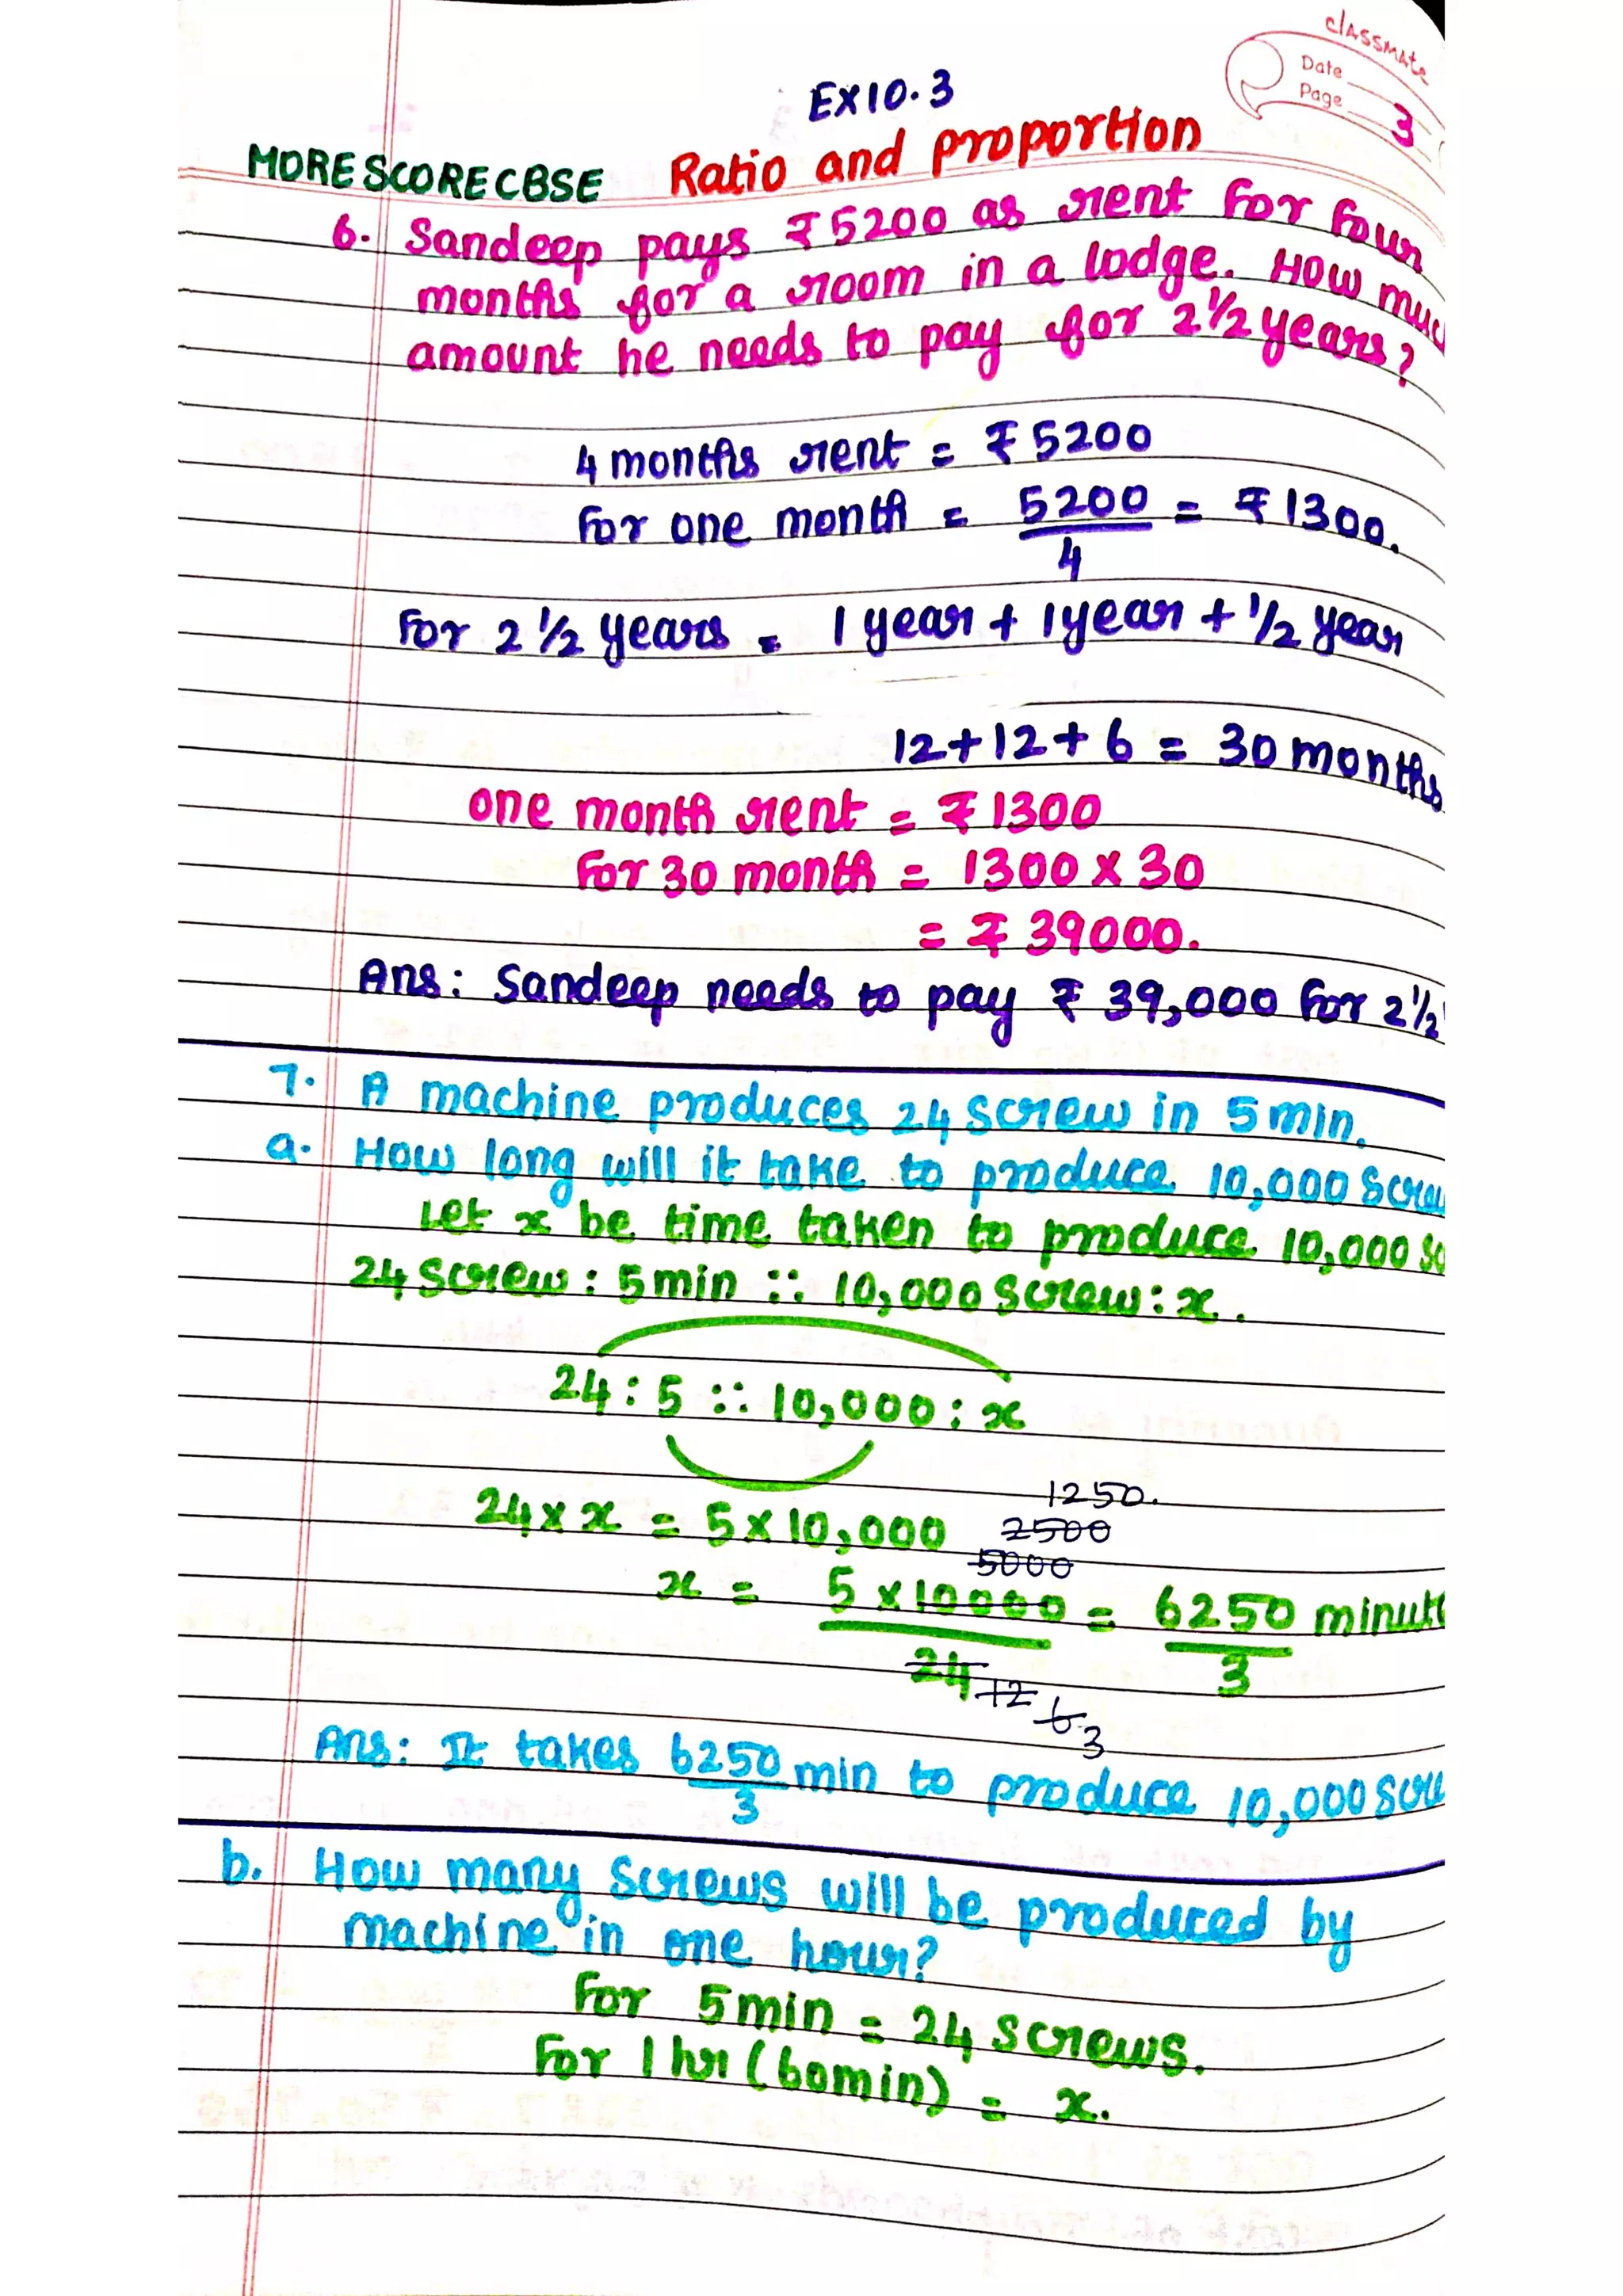 classmate
Date
Page 3
EX10.3
MORE SCORE CBSE Ratio and proportion
6. Sandeep pays ₹5200 as rent for four
months for a room in a lodge. How muc
amount he needs to pay for 2 1/2 years?
4 months rent = ₹5200
For one month = 5200/4 = ₹1300.
For 2 1/2 years = 1 year + 1 year + 1/2 year
12+12+6 = 30 months
one month rent = ₹1300
For 30 month = 1300 × 30
= ₹39000.
Ans: Sandeep needs to pay ₹39,000 for 2 1/2
7. A machine produces 24 screw in 5 min.
a. How long will it take to produce 10,000 Screw
Let x be time taken to produce 10,000 sc
24 screw : 5 min :: 10,000 screw : x.
24 : 5 :: 10,000 : x
1250.
24 × x = 5 × 10,000 2500
5000
x = 5 × 10000/24 = 6250/3 minute
12 6 3
Ans: It takes 6250/3 min to produce 10,000 scre
b. How many screws will be produced by
machine in one hour?
For 5 min = 24 screws.
For 1 hr (60 min) = x.